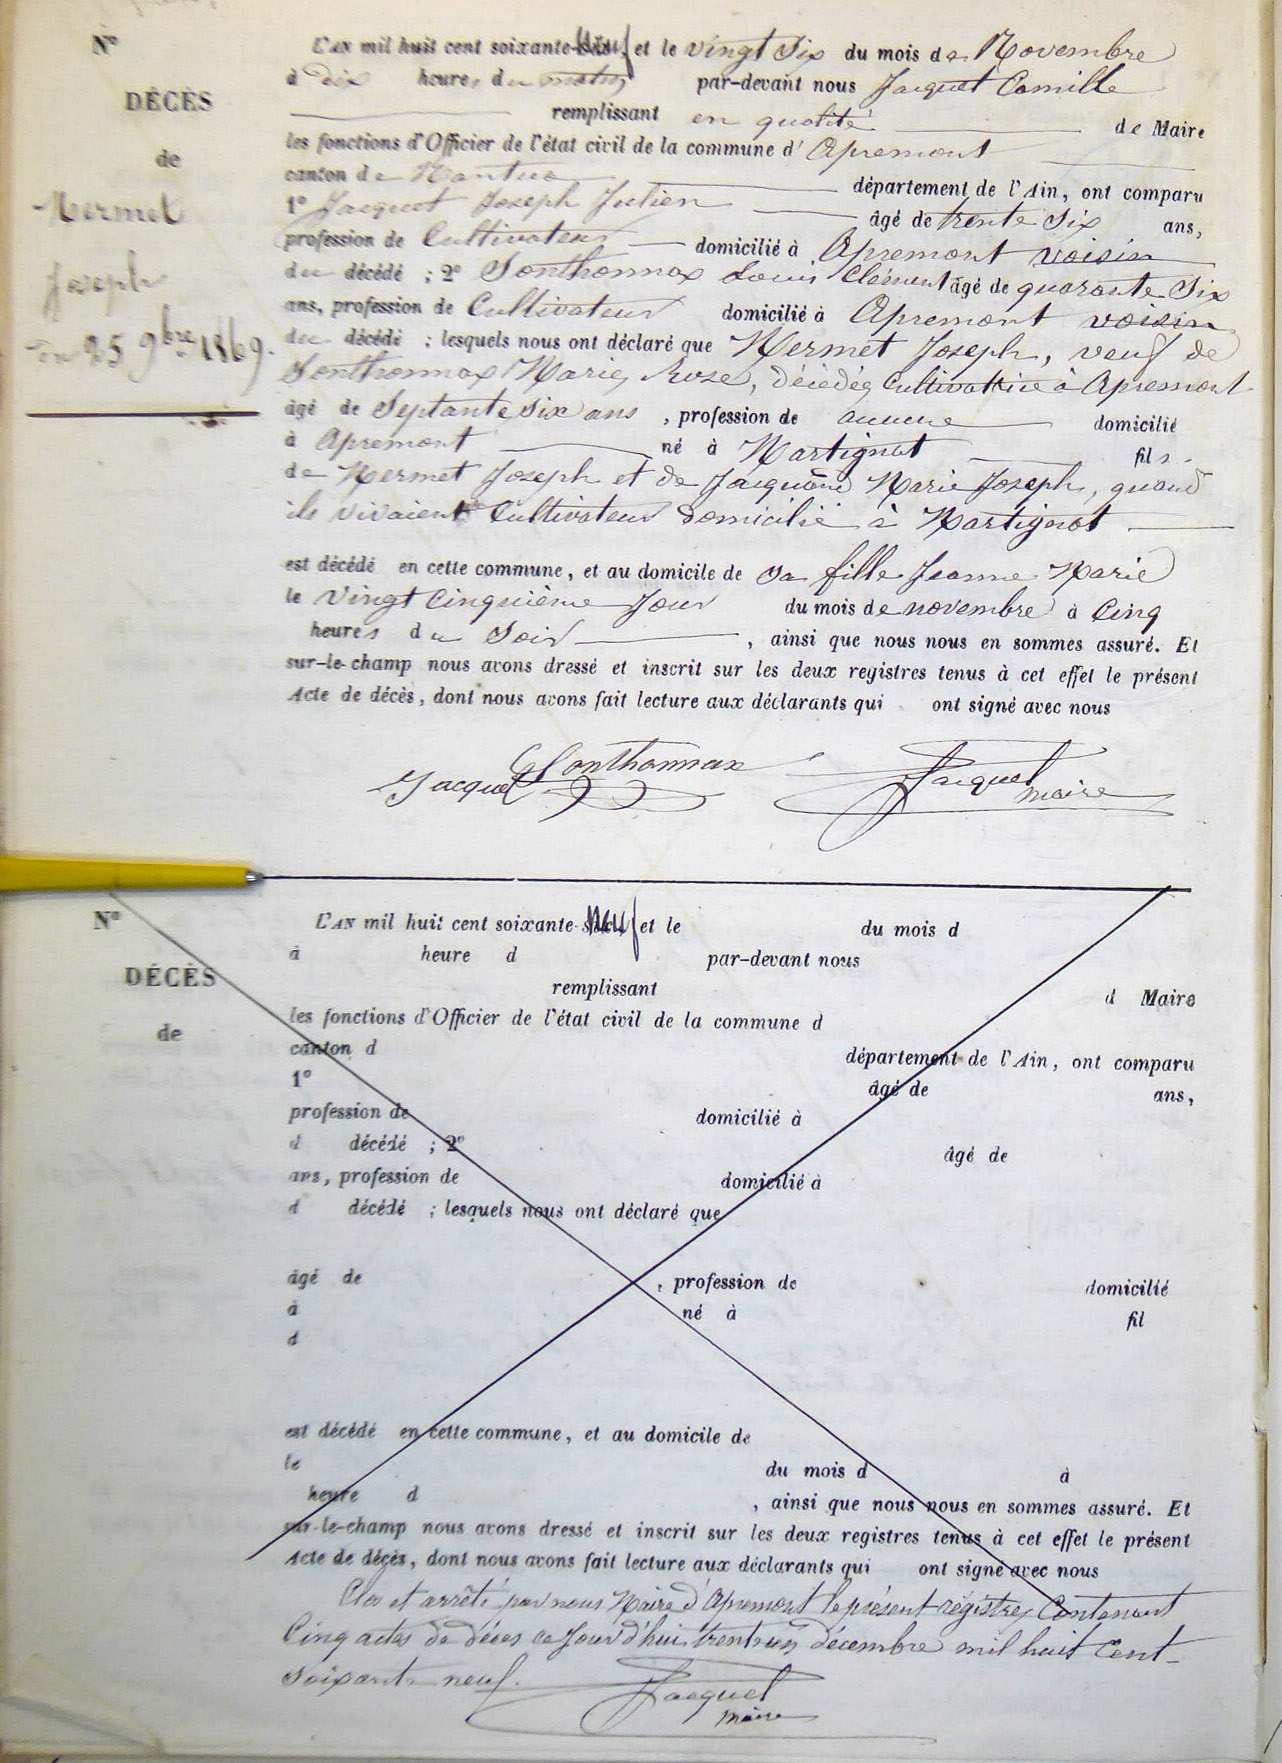 N°
DÉCÈS
de
Mermet
Joseph
du 25 9bre 1869.
L'AN mil huit cent soixante-neuf, et le vingt six du mois de Novembre
à dix heures du matin par-devant nous Jacquet Camille
remplissant en qualité de Maire
les fonctions d'Officier de l'état civil de la commune d'Apremont
canton de Nantua département de l'Ain, ont comparu
1° Jacquet Joseph Julien âgé de trente Six ans,
profession de Cultivateur domicilié à Apremont voisin
du décédé ; 2° Sonthonnax Louis Clément âgé de quarante Six
ans, profession de Cultivateur domicilié à Apremont voisin
du décédé ; lesquels nous ont déclaré que Mermet Joseph, veuf de
Sonthonnax Marie, Rose, décédée Cultivattrice à Apremont
âgé de Septante Six ans, profession de aucune domicilié
à Apremont né à Martignat fils
de Mermet Joseph et de Marie Joseph, quand
ils vivaient Cultivateur domicilié à Martignat
est décédé en cette commune, et au domicile de sa fille Jeanne Marie
le vingt cinquième Jour du mois de novembre à Cinq
heures du Soir, ainsi que nous nous en sommes assuré. Et
sur-le-champ nous avons dressé et inscrit sur les deux registres tenus à cet effet le présent
Acte de décès, dont nous avons fait lecture aux déclarants qui ont signé avec nous
Jacquet Sonthonnax Jacquet
maire
N°
DÉCÈS
de
L'AN mil huit cent soixante-neuf et le du mois d
à heure d par-devant nous
remplissant d Maire
les fonctions d'Officier de l'état civil de la commune d
canton d département de l'Ain, ont comparu
1° âgé de ans,
profession de domicilié à
d décédé ; 2° âgé de
ans, profession de domicilié à
d décédé ; lesquels nous ont déclaré que
âgé de , profession de domicilié
à né à fil
d
est décédé en cette commune, et au domicile de
le du mois d à
heure d , ainsi que nous nous en sommes assuré. Et
sur-le-champ nous avons dressé et inscrit sur les deux registres tenus à cet effet le présent
Acte de décès, dont nous avons fait lecture aux déclarants qui ont signé avec nous
Clos et arrêté par nous Maire d'Apremont le présent registre, Contenant
Cinq actes de déces ce Jour d'hui trent'un décembre mil huit Cent
soixante neuf.
Jacquet
maire